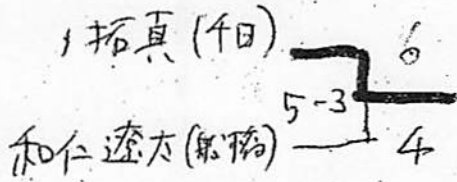 拓真(千日) 6
5-3
和仁遼太(船橋) 4